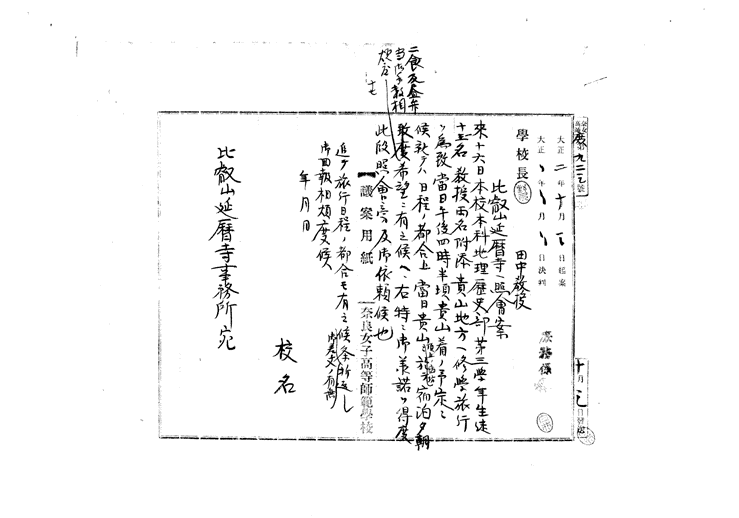 大正二年十月一日起案
大正 年 月 日決判
學校長
田中教授
庶務係
比叡山延暦寺ヘ照會案
來十六日本校本科地理歴史部第三學年生徒
十五名教授両名附添貴山地方ヘ修學旅行
ヲ為致當日午後四時半頃貴山着ノ予定ニ
候就テハ日程ノ都合上當日貴山ニ於テ宿泊夕朝
二食及
致度希望ニ有之候ヘハ右特ニ御承諾ヲ得度
此段照會旁及御依頼候也
追テ旅行日程ノ都合モ有之候条折返シ
御差支ノ有無
御回報相煩度候
年月日
校名
比叡山延暦寺事務所宛
議案用紙
奈良女子高等師範學校